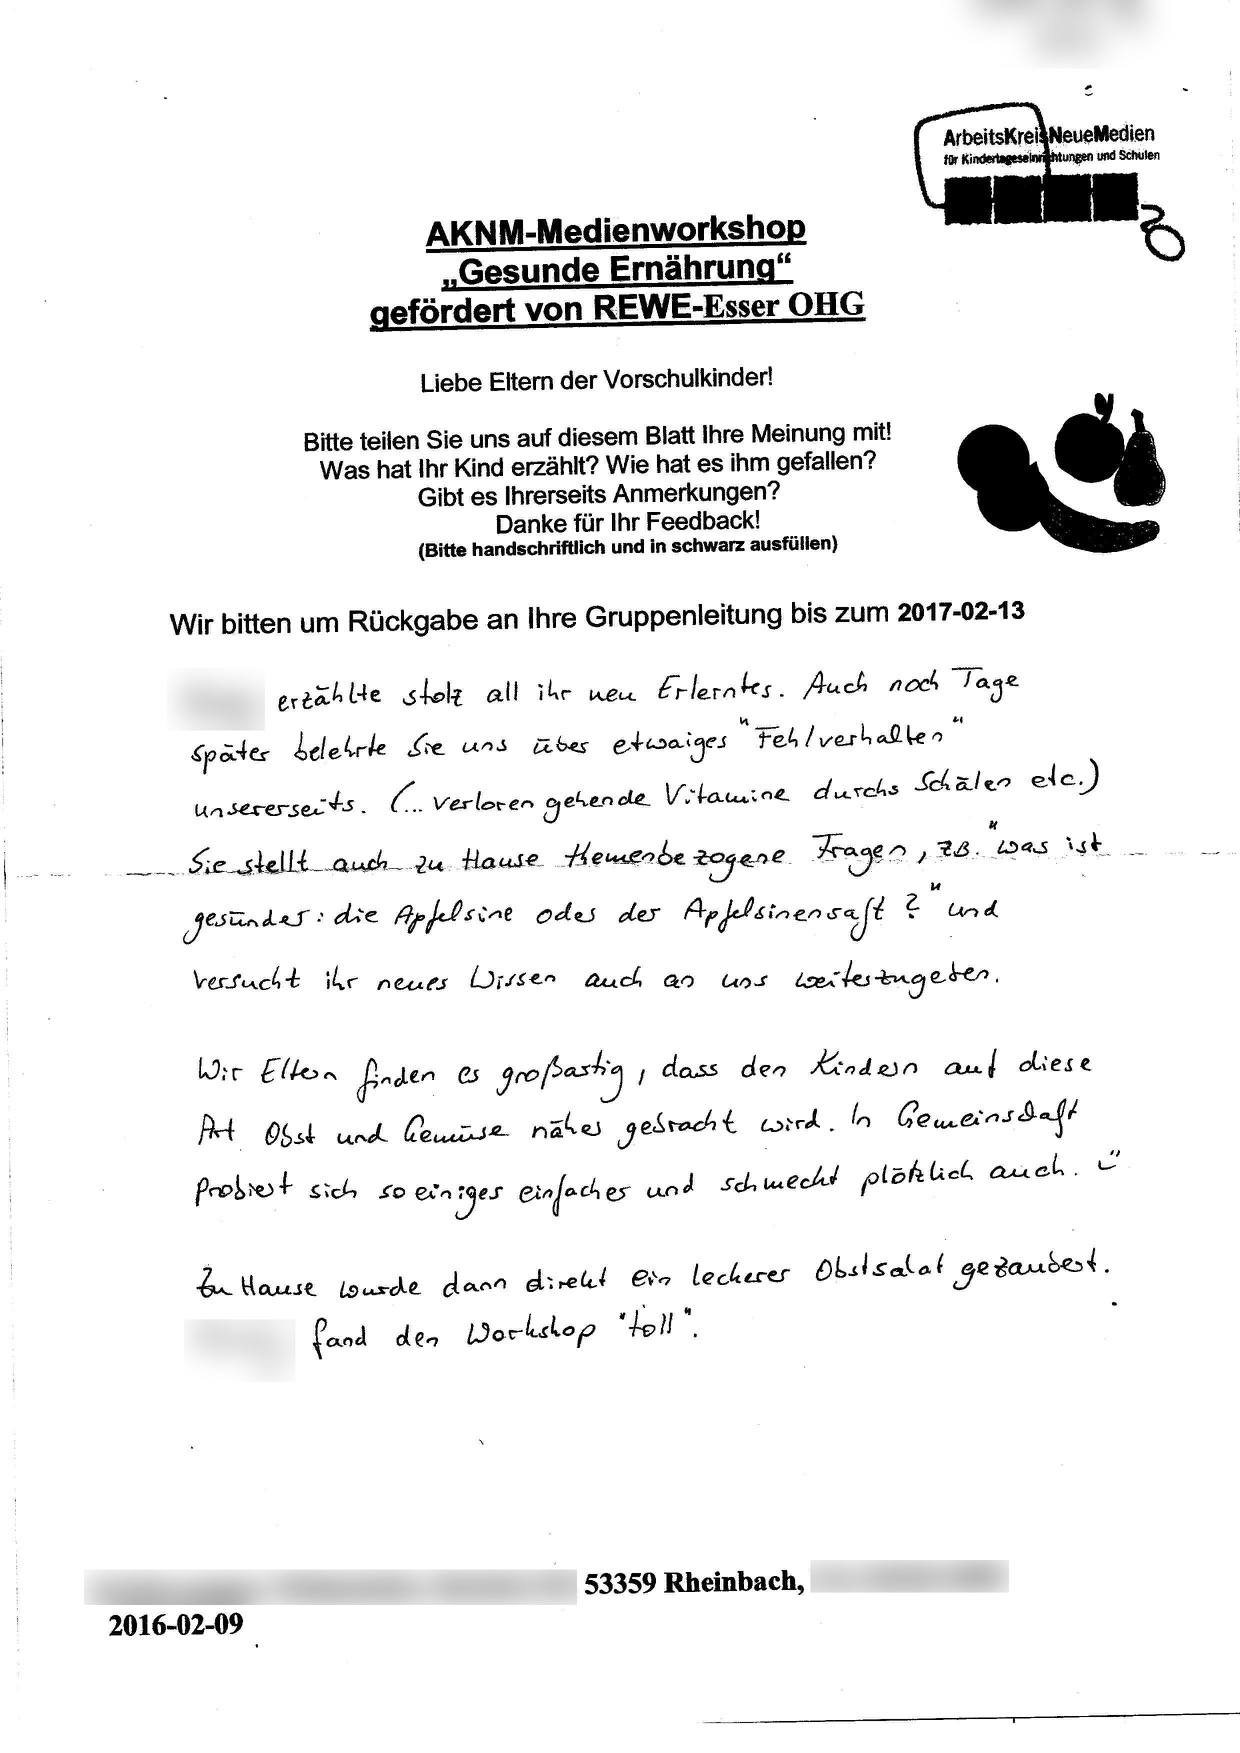 ArbeitsKreisNeueMedien
für Kindertageseinrichtungen und Schulen
AKNM-Medienworkshop
„Gesunde Ernährung“
gefördert von REWE-Esser OHG
Liebe Eltern der Vorschulkinder!
Bitte teilen Sie uns auf diesem Blatt Ihre Meinung mit!
Was hat Ihr Kind erzählt? Wie hat es ihm gefallen?
Gibt es Ihrerseits Anmerkungen?
Danke für Ihr Feedback!
(Bitte handschriftlich und in schwarz ausfüllen)
Wir bitten um Rückgabe an Ihre Gruppenleitung bis zum 2017-02-13
erzählte stolz all ihr neu Erlerntes. Auch noch Tage
später belehrte Sie uns über etwaiges "Fehlverhalten"
unsererseits. (... verloren gehende Vitamine durchs Schälen etc.)
Sie stellt auch zu Hause themenbezogene Fragen, z.B. "was ist
gesünder: die Apfelsine oder der Apfelsinensaft?" und
versucht ihr neues Wissen auch an uns weiterzugeben.
Wir Eltern finden es großartig, dass den Kindern auf diese
Art Obst und Gemüse näher gebracht wird. In Gemeinschaft
probiert sich so einiges einfacher und schmeckt plötzlich auch. ☺
Zu Hause wurde dann direkt ein leckerer Obstsalat gezaubert.
fand den Workshop "toll".
53359 Rheinbach,
2016-02-09